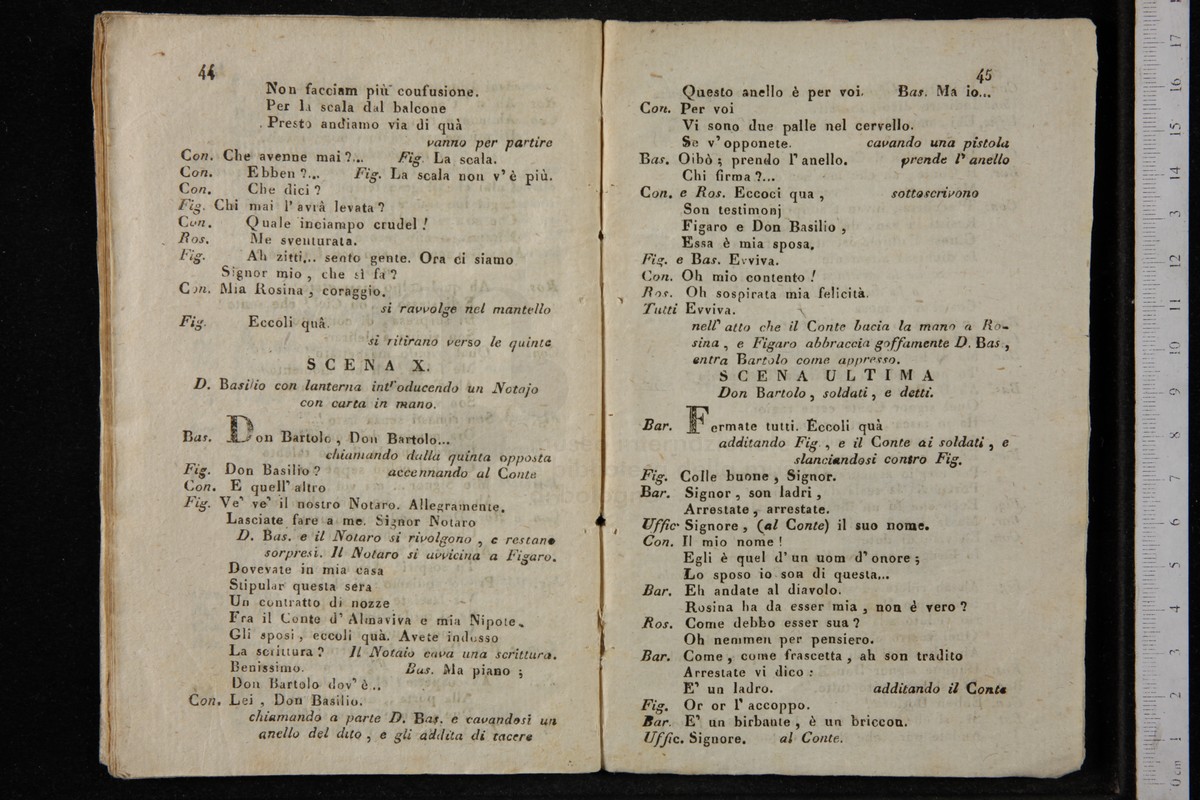 44
Non facciam più coufusione.
Per la scala dal balcone
Presto andiamo via di quà
vanno per partire
Con. Che avenne mai?... Fig. La scala.
Con. Ebben?... Fig. La scala non v'è più.
Con. Che dici?
Fig. Chi mai l'avrà levata?
Con. Quale inciampo crudel!
Ros. Me sventurata.
Fig. Ah zitti... sento gente. Ora ci siamo
Signor mio, che sì fa?
Con. Mia Rosina, coraggio.
si ravvolge nel mantello
Fig. Eccoli quà.
si ritirano verso le quinte
SCENA X.
D. Basilio con lanterna introducendo un Notajo
con carta in mano.
Bas. Don Bartolo, Don Bartolo...
chiamando dalla quinta opposta
Fig. Don Basilio? accennando al Conte
Con. E quell' altro
Fig. Ve' ve' il nostro Notaro. Allegramente.
Lasciate fare a me. Signor Notaro
D. Bas. e il Notaro si rivolgono, e restano
sorpresi. Il Notaro si avvicina a Figaro.
Dovevate in mia casa
Stipular questa sera
Un contratto di nozze
Fra il Conte d'Almaviva e mia Nipote.
Gli sposi, eccoli quà. Avete indosso
La scrittura? Il Notaio cava una scrittura.
Benissimo. Bas. Ma piano;
Don Bartolo dov'è..
Con. Lei, Don Basilio.
chiamando a parte D. Bas. e cavandosi un
anello del dito, e gli addita di tacere
45
Questo anello è per voi. Bas. Ma io...
Con. Per voi
Vi sono due palle nel cervello.
Se v'opponete. cavando una pistola
Bas. Oibò; prendo l'anello. prende l'anello
Chi firma?...
Con. e Ros. Eccoci qua, sottoscrivono
Son testimonj
Figaro e Don Basilio,
Essa è mia sposa.
Fig. e Bas. Evviva.
Con. Oh mio contento!
Ros. Oh sospirata mia felicità.
Tutti Evviva.
nell' atto che il Conte bacia la mano a Ro-
sina, e Figaro abbraccia goffamente D. Bas,
entra Bartolo come appresso.
SCENA ULTIMA
Don Bartolo, soldati, e detti.
Bar. Fermate tutti. Eccoli quà
additando Fig., e il Conte ai soldati, e
slanciandosi contro Fig.
Fig. Colle buone, Signor.
Bar. Signor, son ladri,
Arrestate, arrestate.
Uffic. Signore, (al Conte) il suo nome.
Con. Il mio nome!
Egli è quel d'un uom d'onore;
Lo sposo io son di questa...
Bar. Eh andate al diavolo.
Rosina ha da esser mia, non è vero?
Ros. Come debbo esser sua?
Oh nemmen per pensiero.
Bar. Come, come frascetta, ah son tradito
Arrestate vi dico:
E' un ladro. additando il Conte
Fig. Or or l'accoppo.
Bar. E' un birbante, è un briccon.
Uffic. Signore. al Conte.